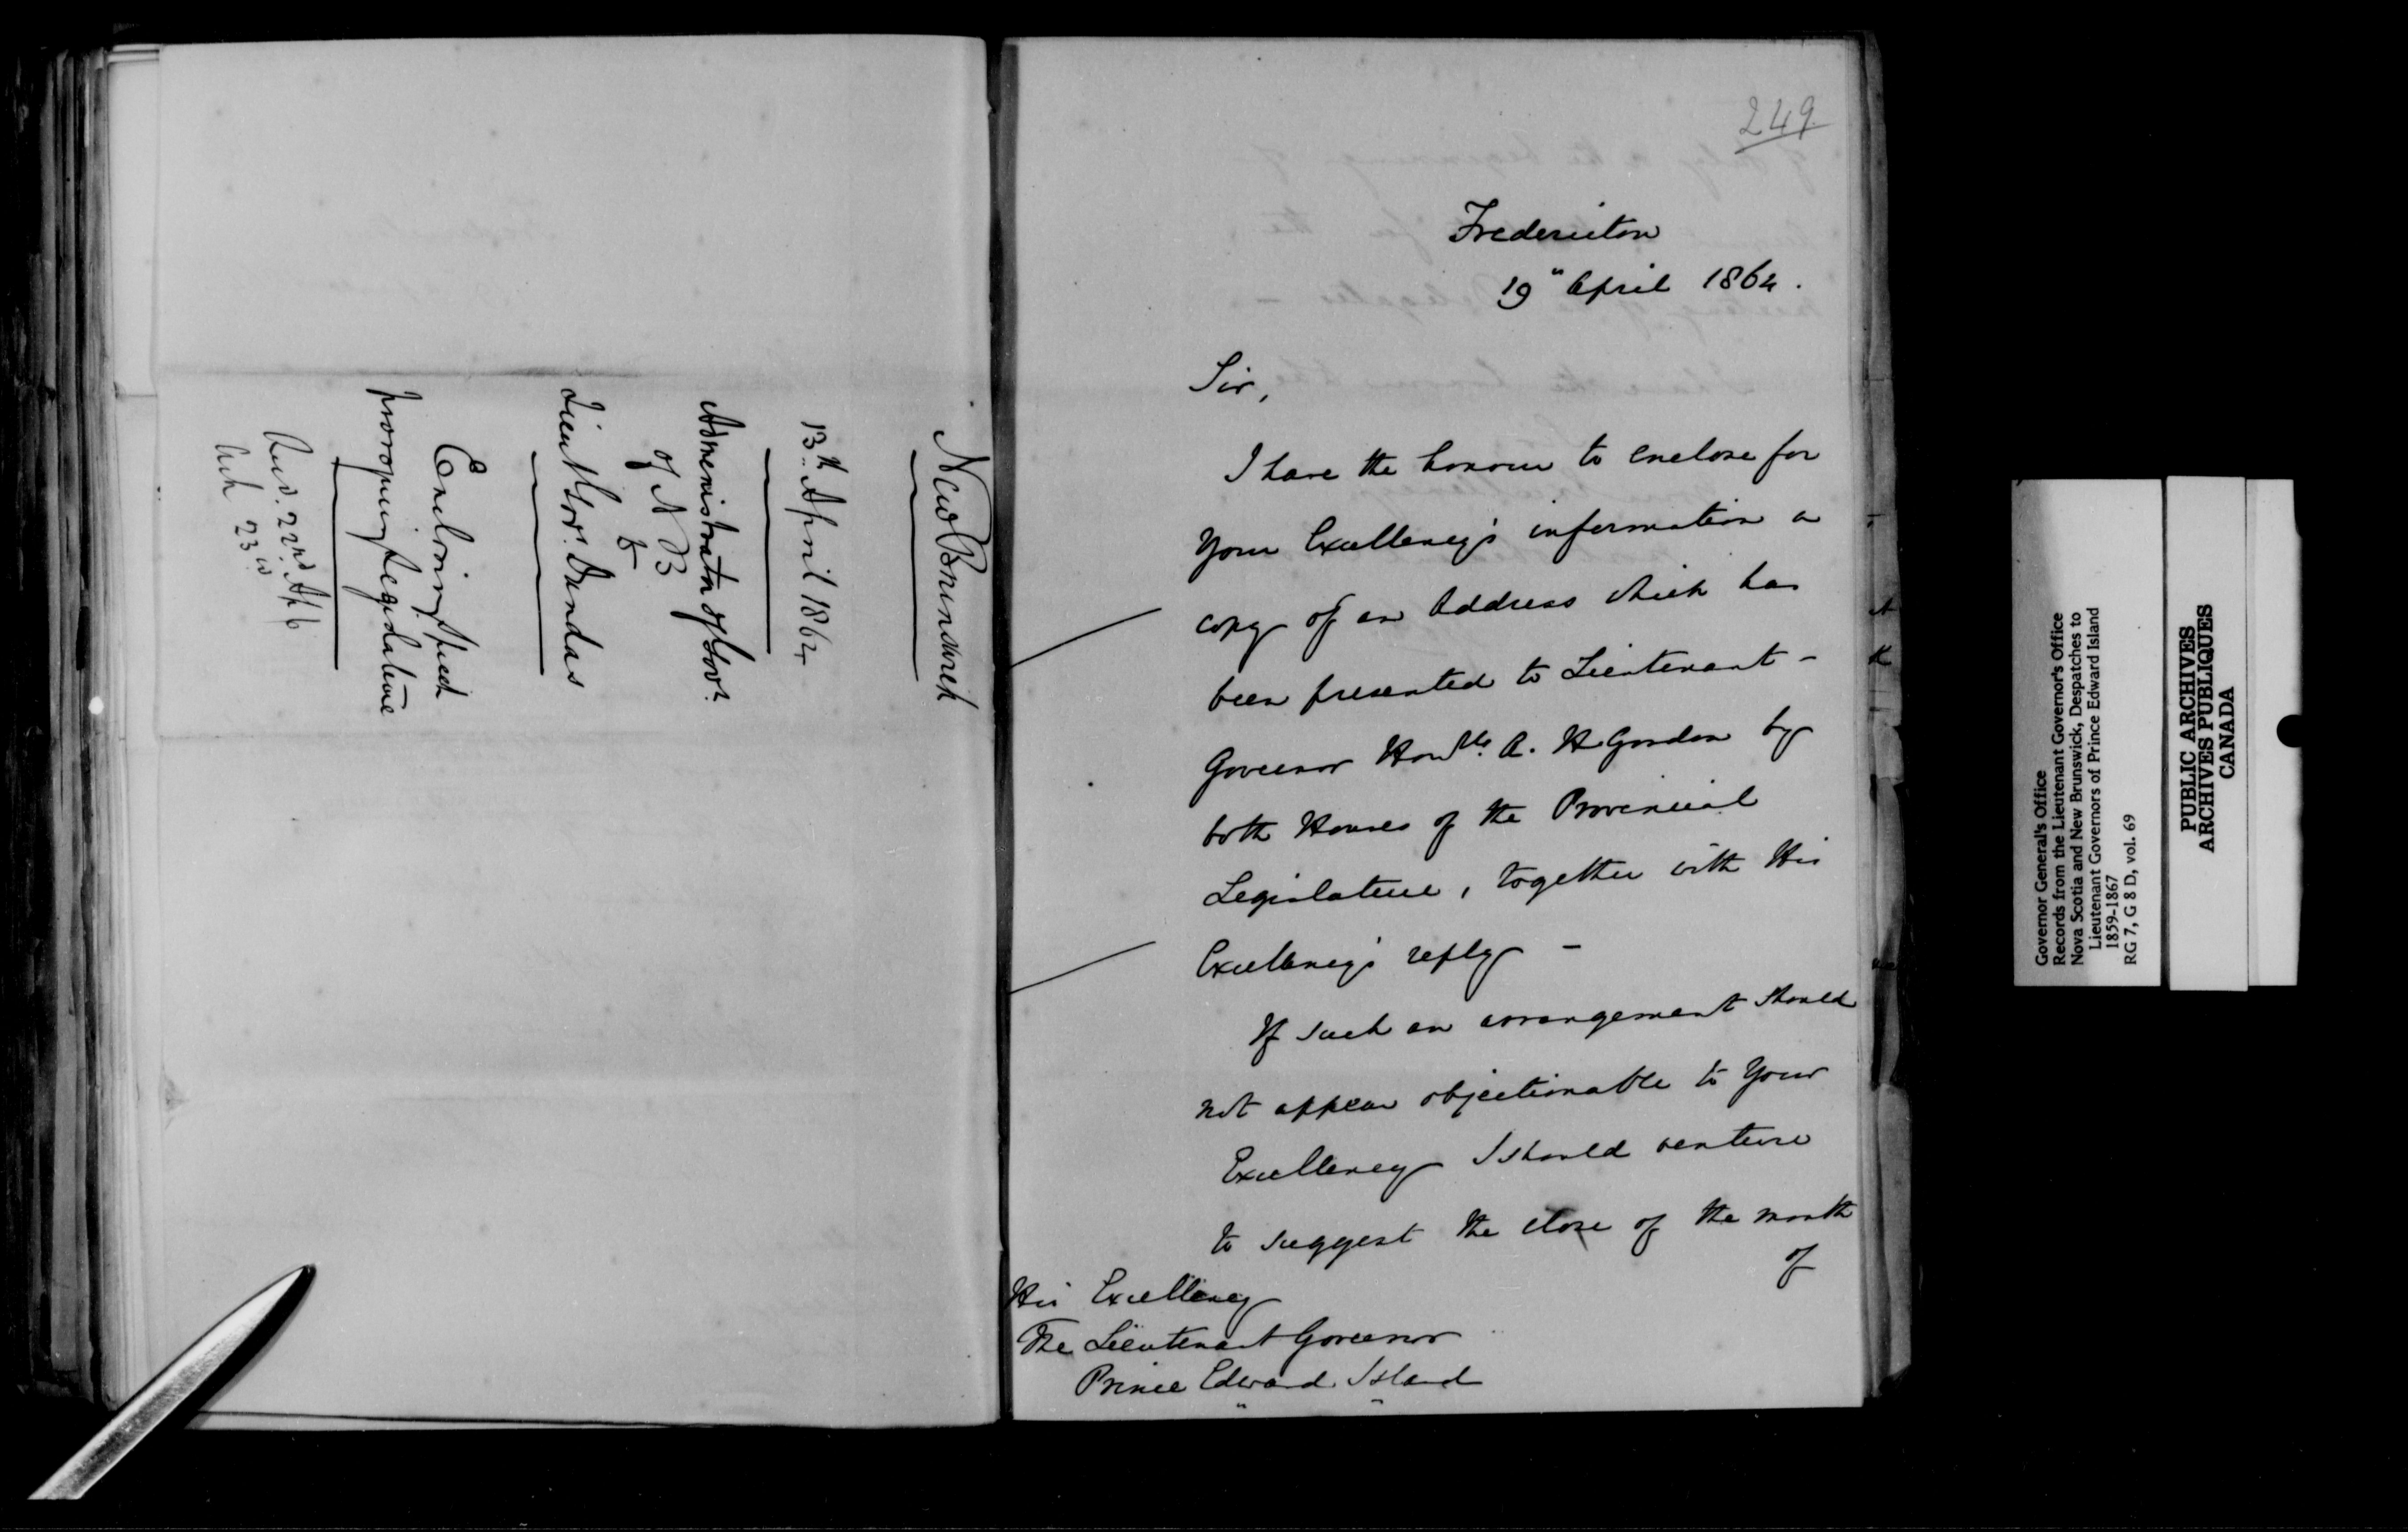 New Brunswick
13th April 1864
Administrator of Govt.
of N B
to
Lieut Gov. Dundas
Enclosing Speech
proroguing Legislature
Recd. 22nd Ap/6
Ack 23rd
249
Fredericton
19" April 1864.
Sir,
I have the honour to enclose for
Your Excellency's information a
copy of an Address which has
been presented to Lieutenant-
Governor Honble. A. H Gordon by
both Houses of the Provincial
Legislature, together with His
Excellency's reply –
If such an arrangement should
not appear objectionable to Your
Excellency I should venture
to suggest the close of the month
of
His Excellency
The Lieutenant Governor
Prince Edward Island
Governor General's Office
Records from the Lieutenant Governor's Office
Nova Scotia and New Brunswick, Despatches to
Lieutenant Governors of Prince Edward Island
1859-1867
RG 7, G 8 D, vol. 69
PUBLIC ARCHIVES
ARCHIVES PUBLIQUES
CANADA